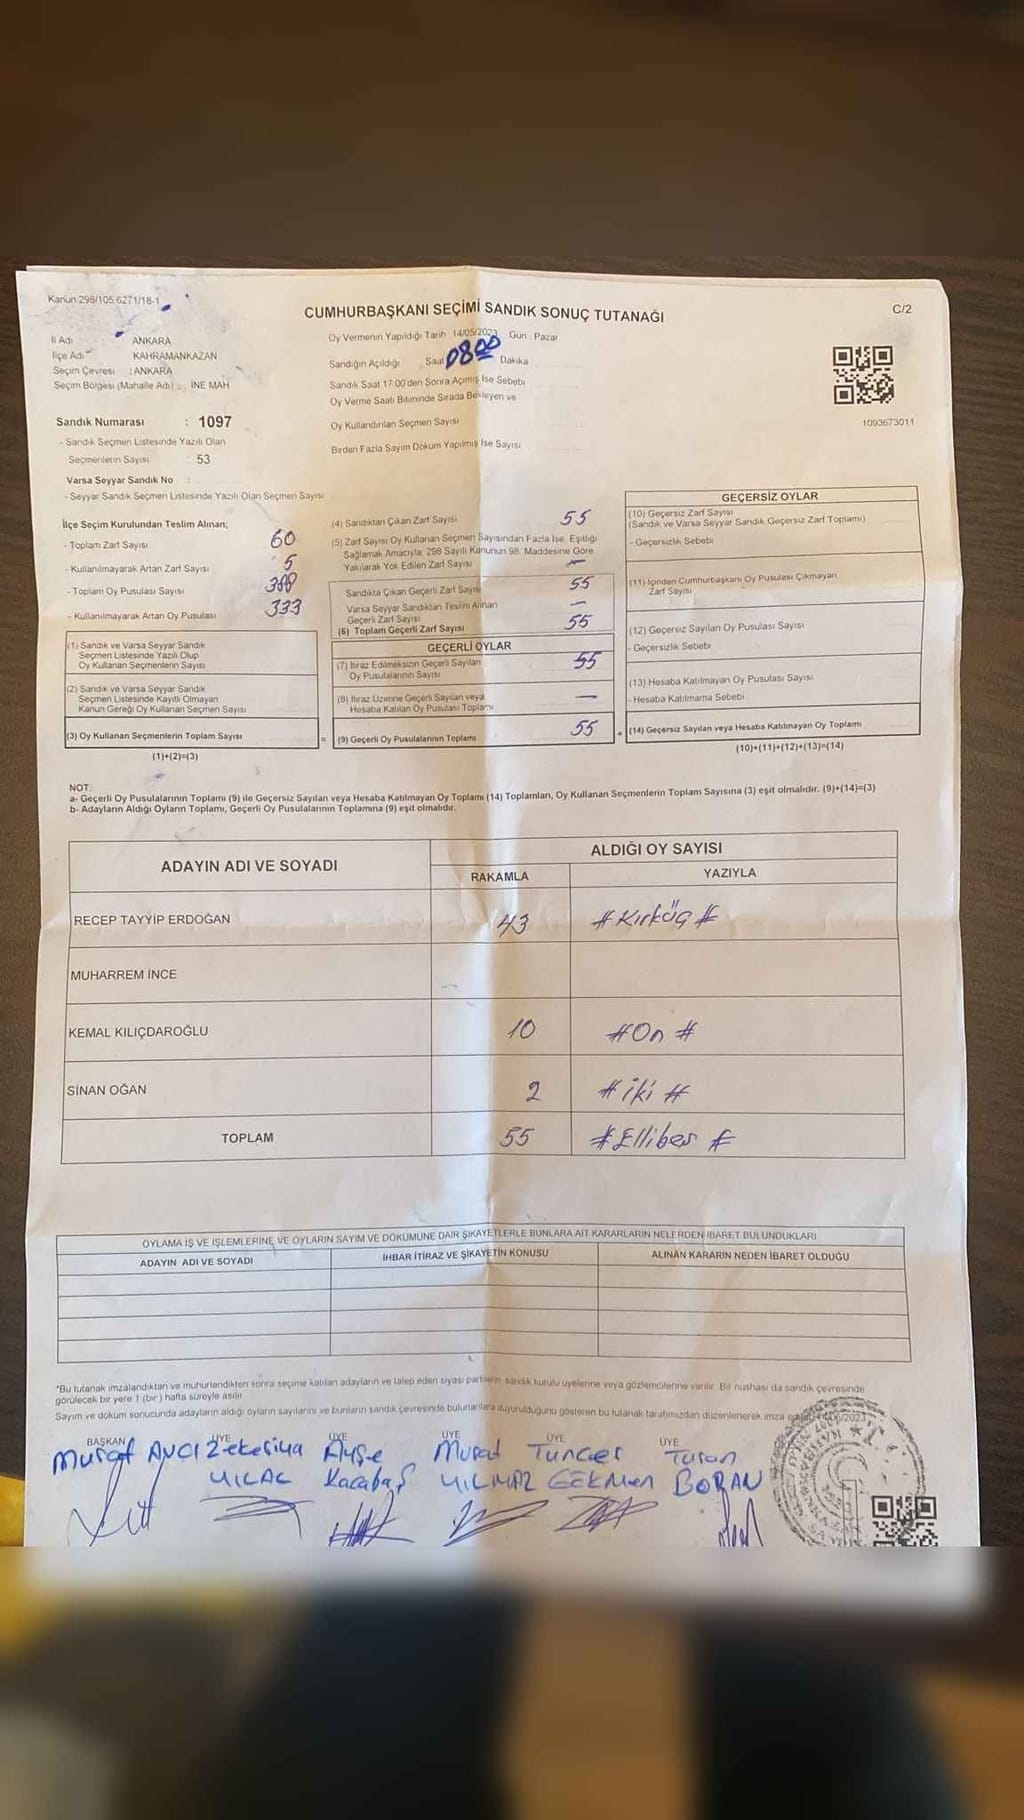 Kanun 298/105 6271/18-1
CUMHURBAŞKANI SEÇİMİ SANDIK SONUÇ TUTANAĞI
C/2
İl Adı ANKARA
İlçe Adı KAHRAMANKAZAN
Seçim Çevresi : ANKARA
Seçim Bölgesi (Mahalle Adı) : İNE MAH
Oy Vermenin Yapıldığı Tarih 14/05/2023 Gün : Pazar
Sandığın Açıldığı Saat 08:00 Dakika
Sandık Saat 17:00'den Sonra Açılmış İse Sebebi
Oy Verme Saati Bitiminde Sırada Bekleyen ve
Oy Kullandırılan Seçmen Sayısı
Birden Fazla Sayım Döküm Yapılmış İse Sayısı
1093673011
Sandık Numarası : 1097
- Sandık Seçmen Listesinde Yazılı Olan
Seçmenlerin Sayısı : 53
Varsa Seyyar Sandık No :
- Seyyar Sandık Seçmen Listesinde Yazılı Olan Seçmen Sayısı
İlçe Seçim Kurulundan Teslim Alınan;
- Toplam Zarf Sayısı 60
- Kullanılmayarak Artan Zarf Sayısı 5
- Toplam Oy Pusulası Sayısı 388
- Kullanılmayarak Artan Oy Pusulası 333
(1) Sandık ve Varsa Seyyar Sandık
Seçmen Listesinde Yazılı Olup
Oy Kullanan Seçmenlerin Sayısı
(2) Sandık ve Varsa Seyyar Sandık
Seçmen Listesinde Kayıtlı Olmayan
Kanun Gereği Oy Kullanan Seçmen Sayısı
(3) Oy Kullanan Seçmenlerin Toplam Sayısı
(1)+(2)=(3)
(4) Sandıktan Çıkan Zarf Sayısı 55
(5) Zarf Sayısı Oy Kullanan Seçmen Sayısından Fazla İse, Eşitliği
Sağlamak Amacıyla; 298 Sayılı Kanunun 98. Maddesine Göre
Yakılarak Yok Edilen Zarf Sayısı —
Sandıkta Çıkan Geçerli Zarf Sayısı 55
Varsa Seyyar Sandıktan Teslim Alınan
Geçerli Zarf Sayısı —
(6) Toplam Geçerli Zarf Sayısı 55
GEÇERLİ OYLAR
(7) İtiraz Edilmeksizin Geçerli Sayılan
Oy Pusulalarının Sayısı 55
(8) İtiraz Üzerine Geçerli Sayılan veya
Hesaba Katılan Oy Pusulası Toplamı —
= (9) Geçerli Oy Pusulalarının Toplamı 55 +
GEÇERSİZ OYLAR
(10) Geçersiz Zarf Sayısı
(Sandık ve Varsa Seyyar Sandık Geçersiz Zarf Toplamı)
- Geçersizlik Sebebi
(11) İçinden Cumhurbaşkanı Oy Pusulası Çıkmayan
Zarf Sayısı
(12) Geçersiz Sayılan Oy Pusulası Sayısı
- Geçersizlik Sebebi
(13) Hesaba Katılmayan Oy Pusulası Sayısı
- Hesaba Katılmama Sebebi
(14) Geçersiz Sayılan veya Hesaba Katılmayan Oy Toplamı
(10)+(11)+(12)+(13)=(14)
NOT:
a- Geçerli Oy Pusulalarının Toplamı (9) ile Geçersiz Sayılan veya Hesaba Katılmayan Oy Toplamı (14) Toplamları, Oy Kullanan Seçmenlerin Toplam Sayısına (3) eşit olmalıdır. (9)+(14)=(3)
b- Adayların Aldığı Oyların Toplamı, Geçerli Oy Pusulalarının Toplamına (9) eşit olmalıdır.
ADAYIN ADI VE SOYADI
ALDIĞI OY SAYISI
RAKAMLA YAZIYLA
RECEP TAYYİP ERDOĞAN 43 #Kırküç#
MUHARREM İNCE
KEMAL KILIÇDAROĞLU 10 #On#
SİNAN OĞAN 2 #iki#
TOPLAM 55 #Ellibes#
OYLAMA İŞ VE İŞLEMLERİNE VE OYLARIN SAYIM VE DÖKÜMÜNE DAİR ŞİKAYETLERLE BUNLARA AİT KARARLARIN NELERDEN İBARET BULUNDUKLARI
ADAYIN ADI VE SOYADI İHBAR İTİRAZ VE ŞİKAYETİN KONUSU ALINAN KARARIN NEDEN İBARET OLDUĞU
*Bu tutanak imzalandıktan ve mühürlendikten sonra seçime katılan adayların ve talep eden siyasi partilerin sandık kurulu üyelerine veya gözlemcilerine verilir. Bir nüshası da sandık çevresinde
görülecek bir yere 1 (bir) hafta süreyle asılır.
Sayım ve döküm sonucunda adayların aldığı oyların sayılarını ve bunların sandık çevresinde bulunanlara duyurulduğunu gösteren bu tutanak tarafımızdan düzenlenerek imza
BAŞKAN ÜYE ÜYE ÜYE ÜYE ÜYE
Murat AVCI Zekeriya Ayşe Murad Tuncer Turan
Karabaş YILMAZ GEKMEN BORAN